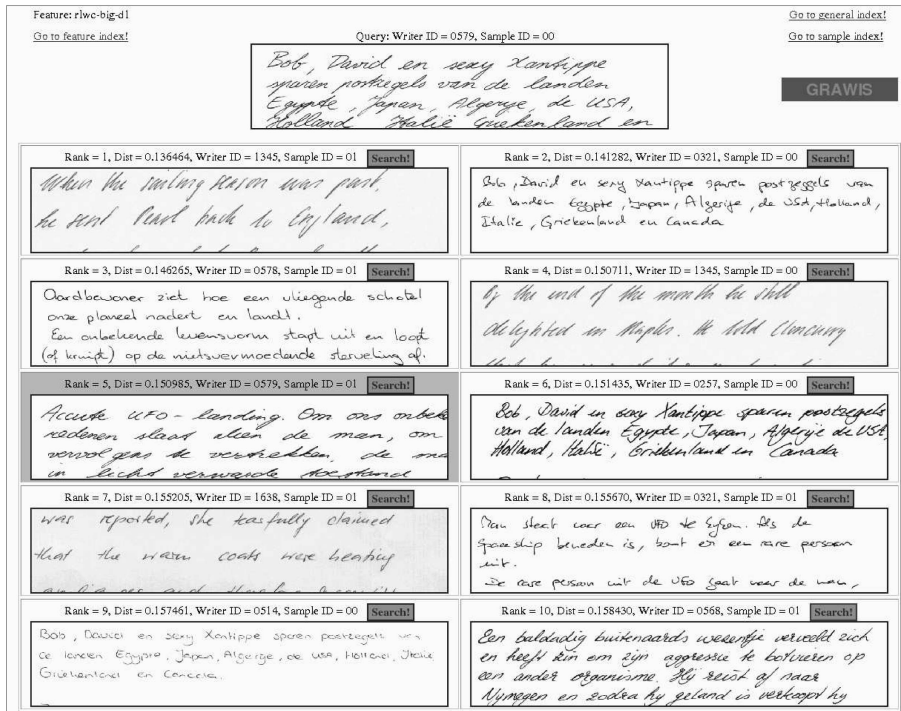 Feature: rlwc-big-d1
Go to general index!
Go to feature index!
Query: Writer ID = 0579, Sample ID = 00
Go to sample index!
Bob, David en sexy Xantippe
sparen postzegels van de landen
Egypte, Japan, Algerije, de USA,
Holland Italië Griekenland en
GRAWIS
Rank = 1, Dist = 0.136464, Writer ID = 1345, Sample ID = 01 Search!
When the sailing season was past,
he sent Pearl back to England,
Rank = 2, Dist = 0.141282, Writer ID = 0321, Sample ID = 00 Search!
Bob, David en sexy Xantippe sparen postzeggels van
de landen Egypte, Japan, Algerije, de USA, Holland,
Italie, Griekenland en Canada
Rank = 3, Dist = 0.146265, Writer ID = 0578, Sample ID = 01 Search!
Aardbewoner ziet hoe een vliegende schotel
onze planeet nadert en landt.
Een onbekende levensvorm stapt uit en loopt
(of kruipt) op de nietsvermoedende sterveling af.
Rank = 4, Dist = 0.150711, Writer ID = 1345, Sample ID = 00 Search!
By the end of the month he still
delighted in Naples. He told Clencurry
Rank = 5, Dist = 0.150985, Writer ID = 0579, Sample ID = 01 Search!
Accute UFO-landing. Om ons onbeke
redenen slaat alien de man, om
vervolgens te vertrekken, de ma
in licht verwarde toestand
Rank = 6, Dist = 0.151435, Writer ID = 0257, Sample ID = 00 Search!
Bob, David en sexy Xantippe sparen postzegels
van de landen Egypte, Japan, Algerije de USA,
Holland, Italië, Griekenland en Canada
Rank = 7, Dist = 0.155205, Writer ID = 1638, Sample ID = 01 Search!
was reported, she tearfully claimed
that the warm coats were heating
Rank = 8, Dist = 0.155670, Writer ID = 0321, Sample ID = 01 Search!
Man steekt voor een UFO te kijken. Als de
spaceship beneden is, komt er een rare persoon
uit.
De rare persoon uit de UFO gaat naar de man,
Rank = 9, Dist = 0.157461, Writer ID = 0514, Sample ID = 00 Search!
Bob, David en sexy Xantippe sparen postzegels van
de landen Egypte, Japan, Algerije, de USA, Holland, Italie
Griekenland en Canada.
Rank = 10, Dist = 0.158430, Writer ID = 0568, Sample ID = 01 Search!
Een baldadig buitenaards wezentje verveeld zich
en heeft zin om zijn aggressie te botvieren op
een ander organisme. Hij reist af naar
Nijmegen en zodra hij geland is verkoopt hij